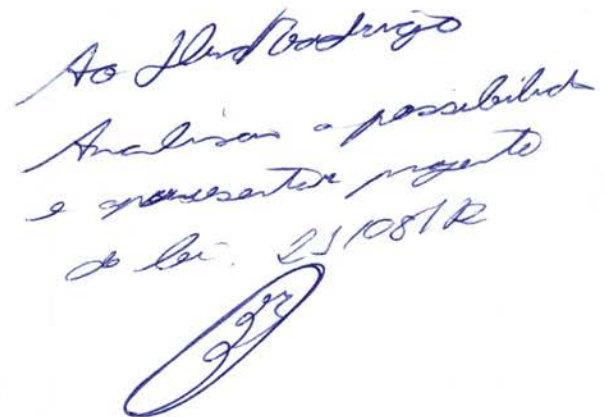 Ao Rodrigo
Analisar a possibilidade
e apresentar projeto
de lei. 21/08/12